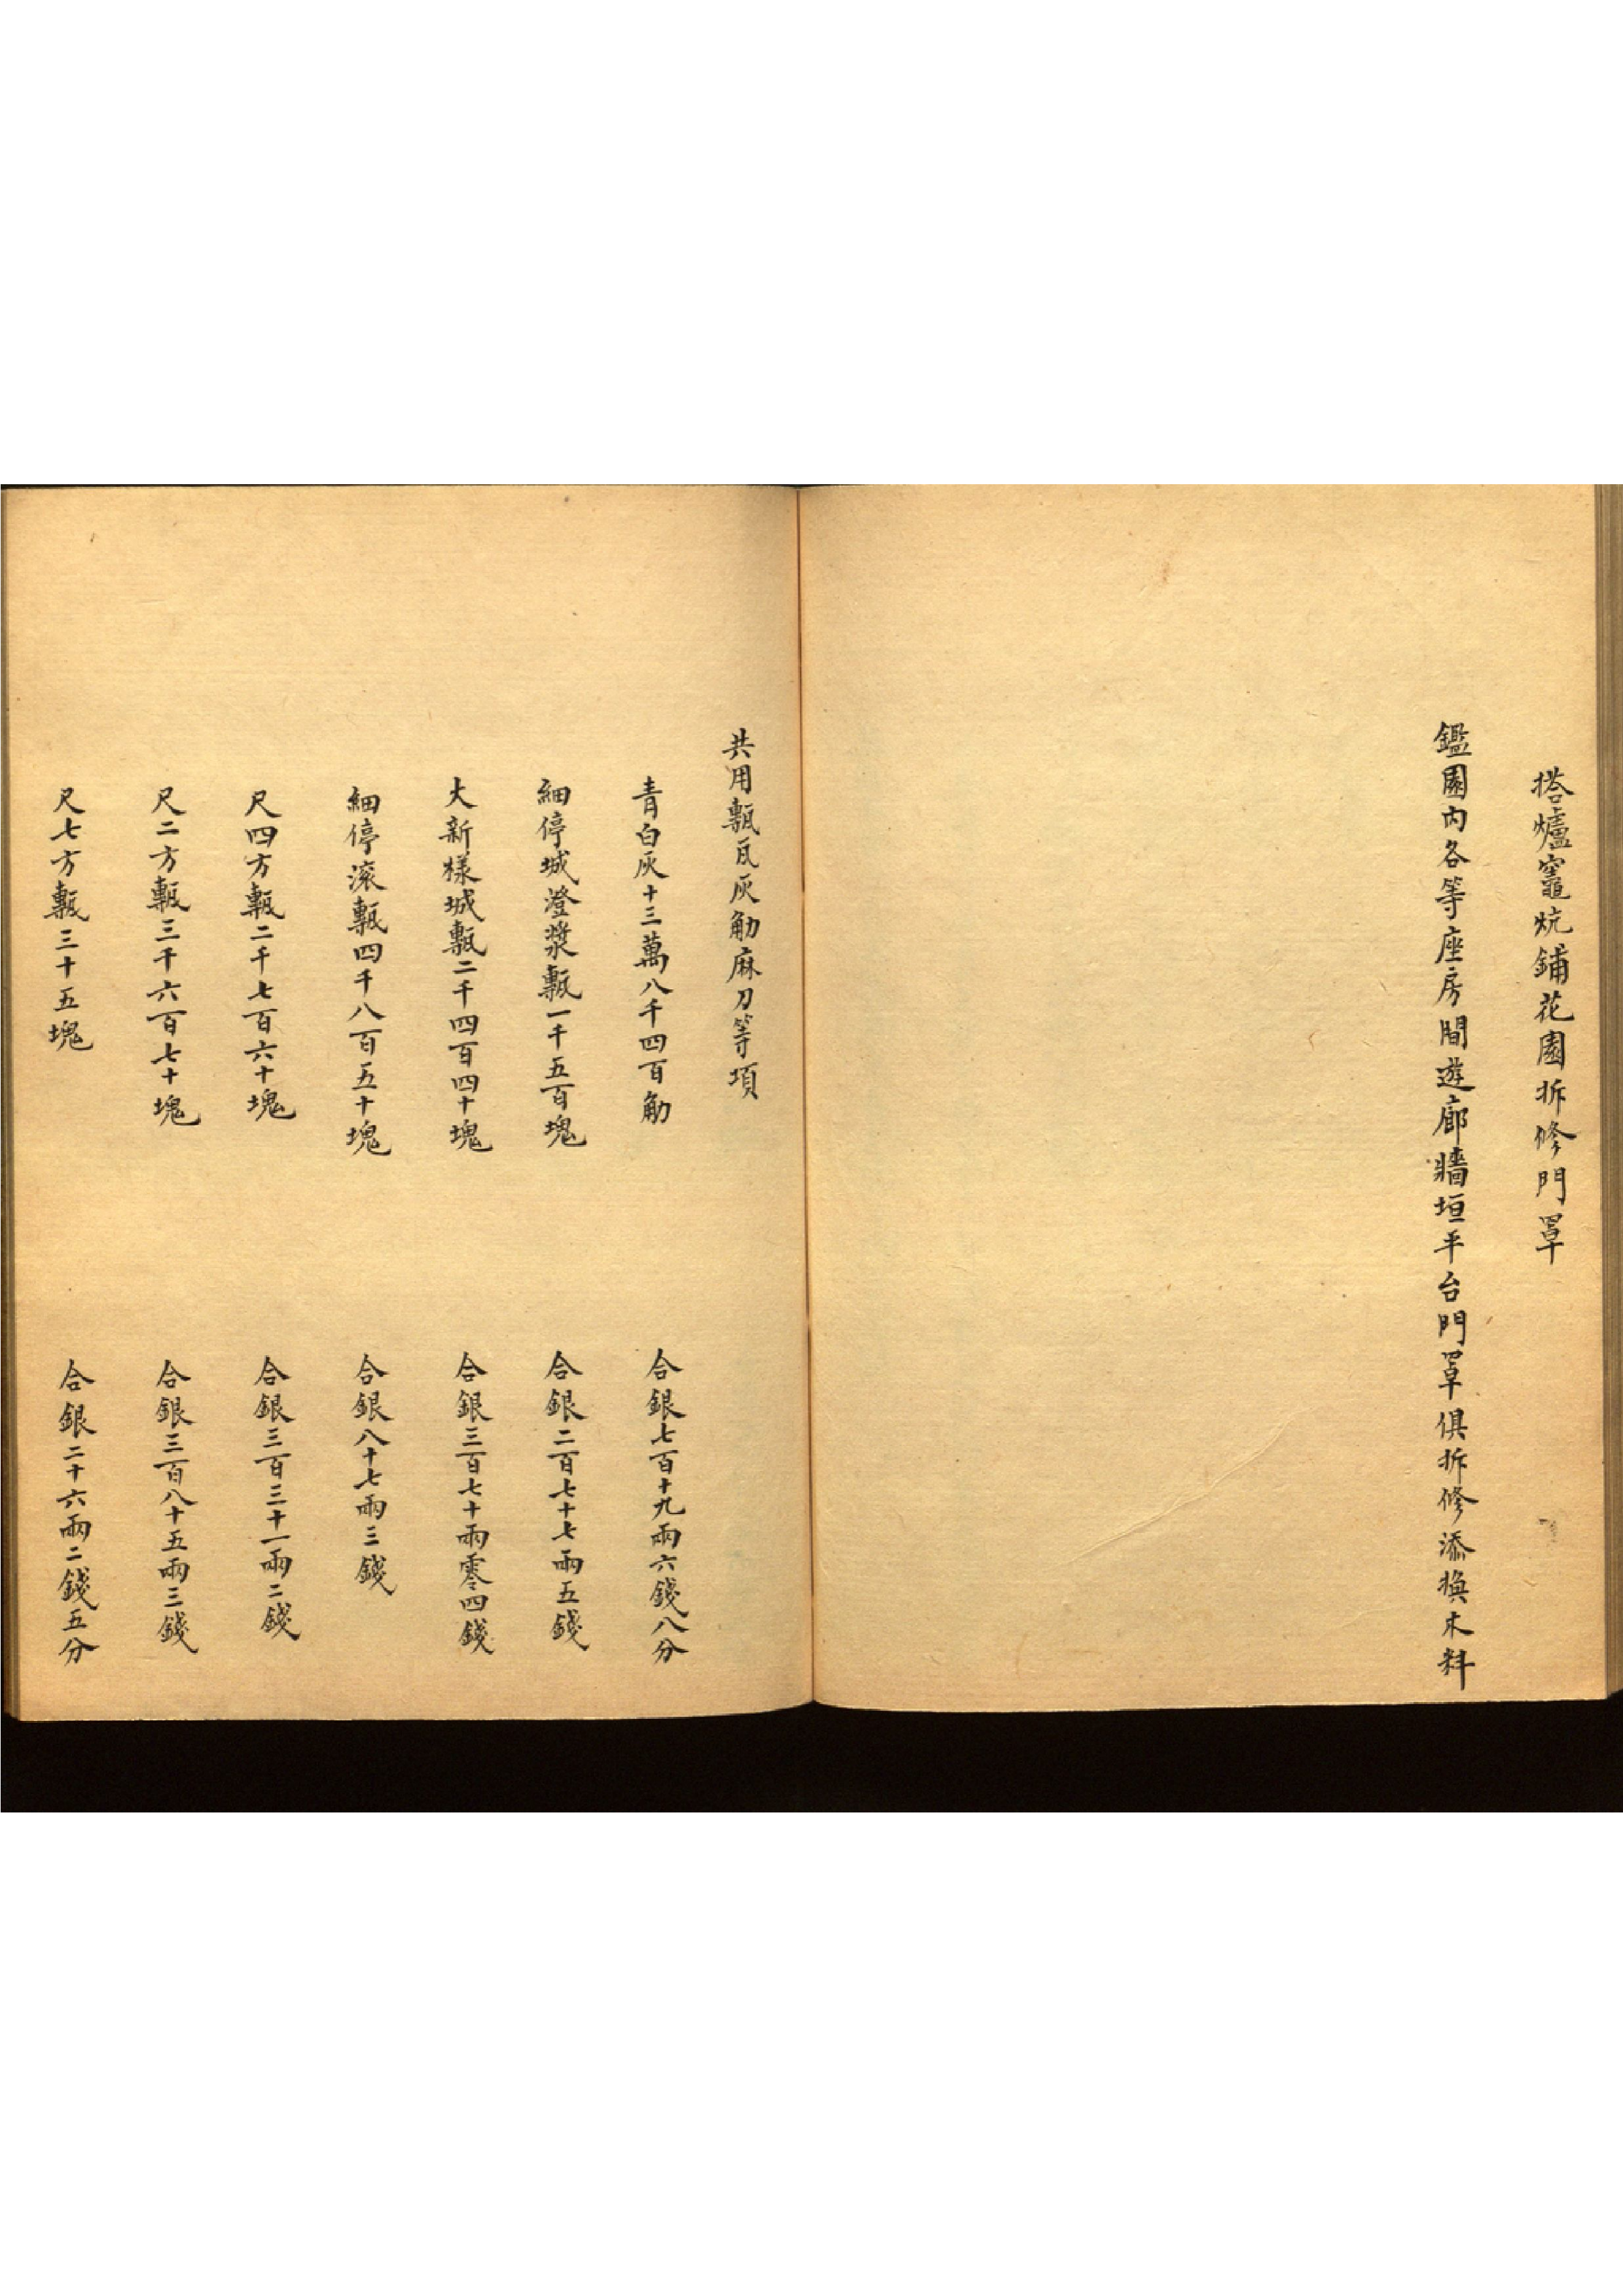 搭爐竈炕鋪花園拆修門罩
鑑園內各等座房間遊廊牆垣平台門罩俱拆修添換木料
共用甎瓦灰觔麻刀等項
青白灰十三萬八千四百觔 合銀七百十九兩六錢八分
細停城澄漿甎一千五百塊 合銀二百七十七兩五錢
大新樣城甎二千四百四十塊 合銀三百七十兩零四錢
細停滾甎四千八百五十塊 合銀八十七兩三錢
尺四方甎二千七百六十塊 合銀三百三十一兩二錢
尺二方甎三千六百七十塊 合銀三百八十五兩三錢
尺七方甎三十五塊 合銀二十六兩二錢五分